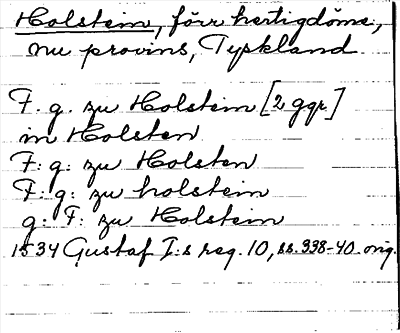 Holstein, förr hertigdöme,
nu provins, Tyskland
F. g. zu Holstein [2 ggr]
in Holsten
F: g: zu Holsten
F: g: zu holstein
g: F: zu Holstein
1534 Gustaf I:s reg. 10, ss. 338-40. orig.